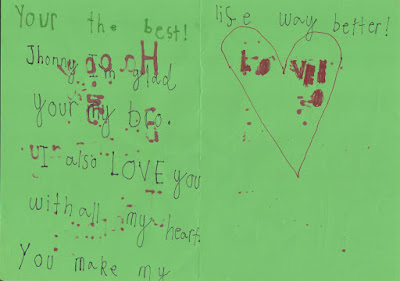 Your the best!
Jhonny I'm glad
your my bro.
I also LOVE you
with all my heart.
You make my
life way better!